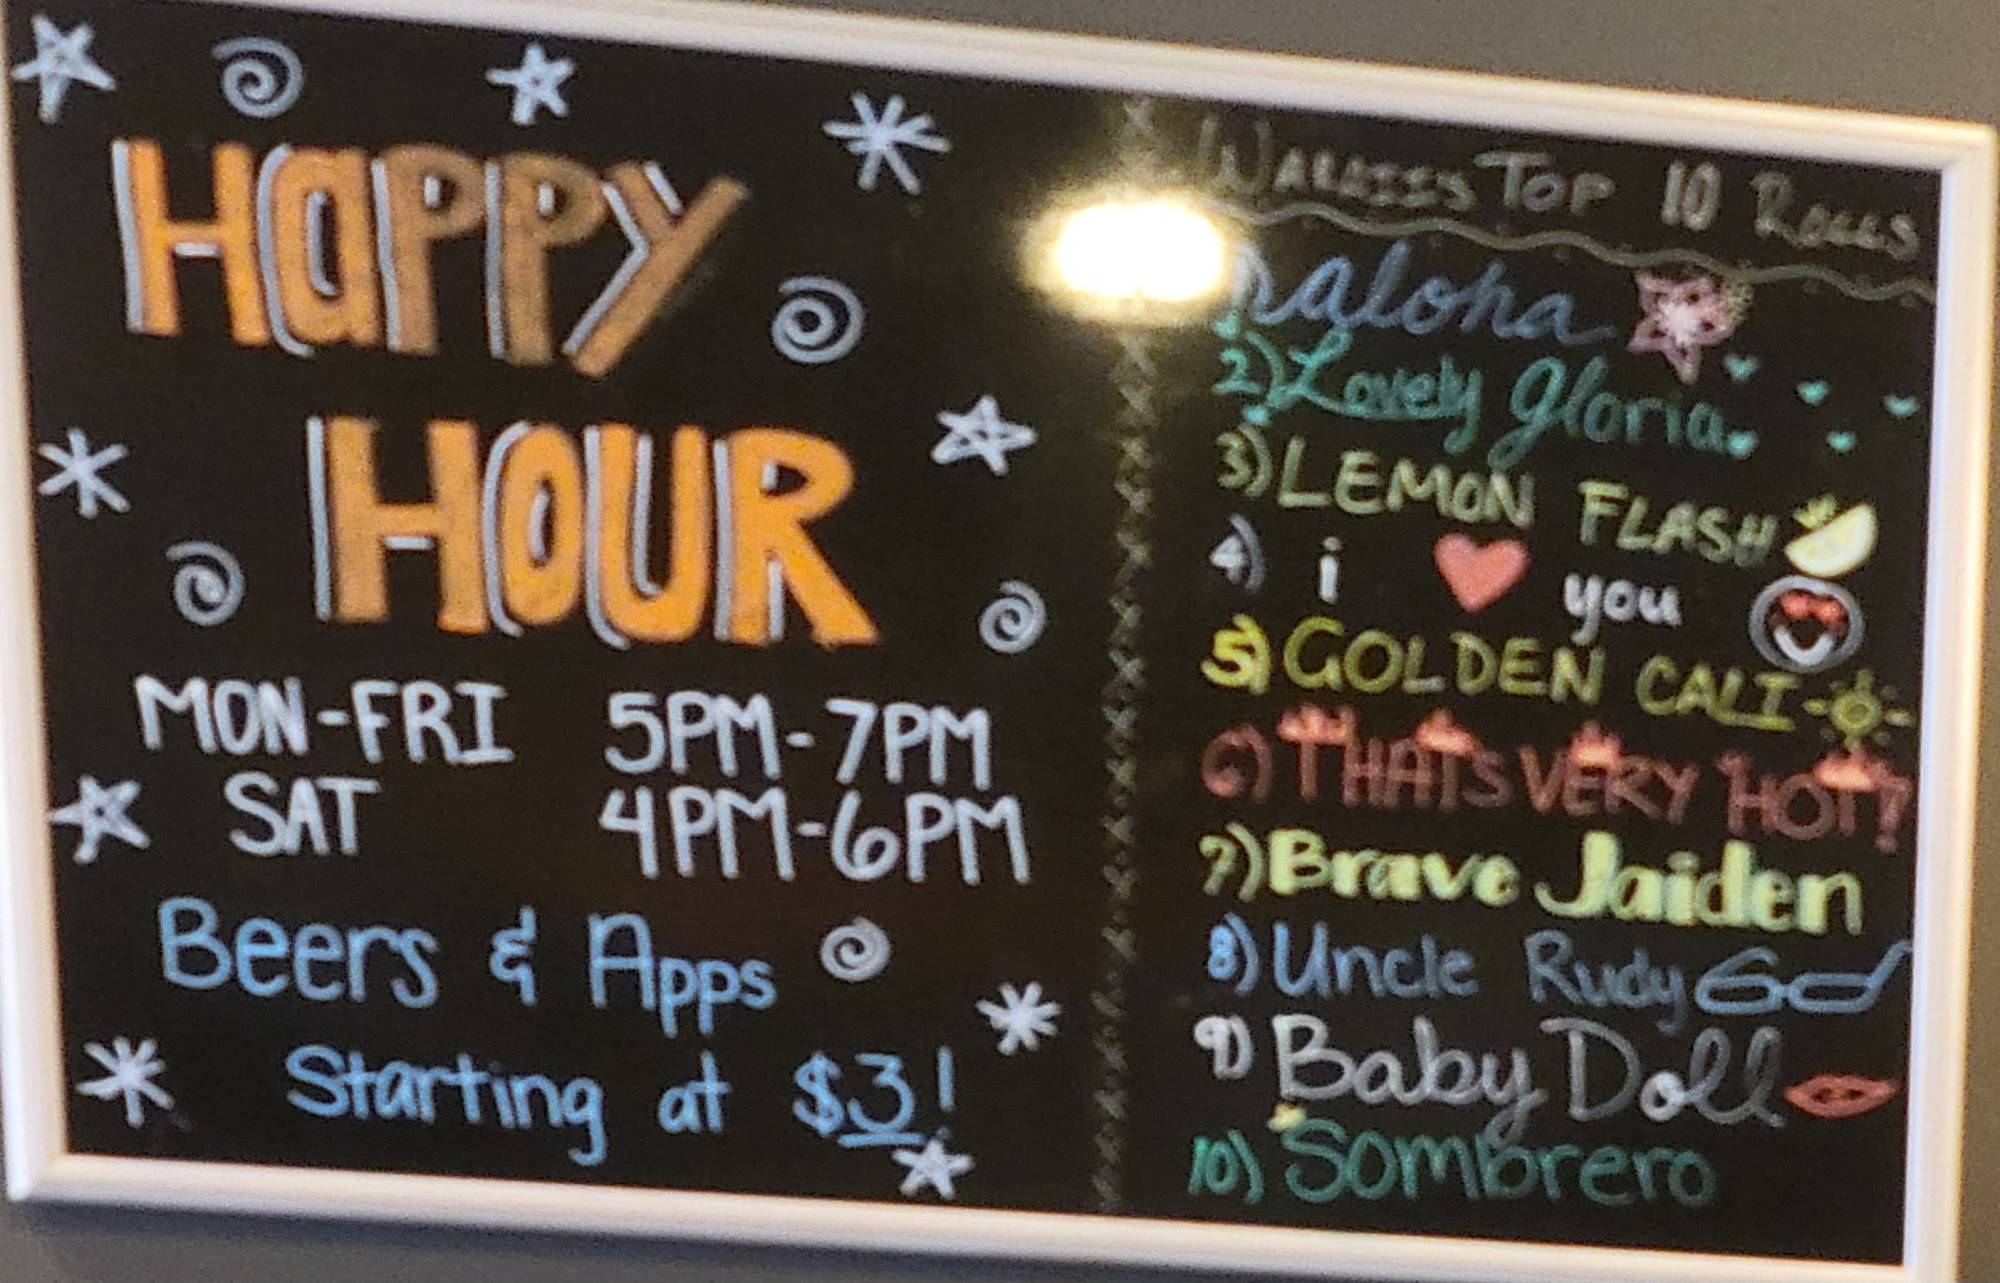 HAPPY
HOUR
MON-FRI 5PM-7PM
SAT 4PM-6PM
Beers & Apps
Starting at $3!
Top 10 Rolls
aloha
2) Lovely Gloria
3) LEMON FLASH
4) i ❤ you
5) GOLDEN CALI
6) THATS VERY HOT!
7) Brave Jaiden
8) Uncle Rudy
9) Baby Doll
10) Sombrero